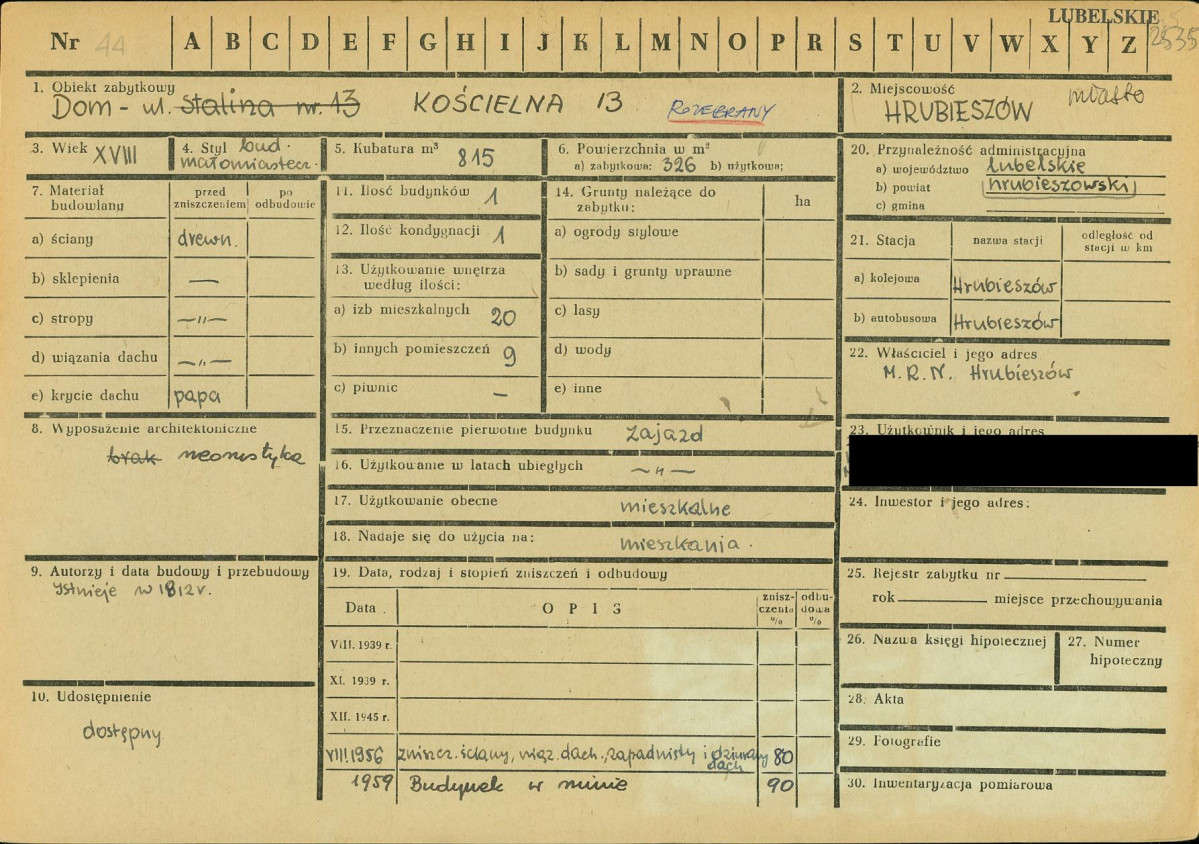 LUBELSKIE
Nr 44 A B C D E F G H I J K L M N O P R S T U V W X Y Z 2535
1. Obiekt zabytkowy
Dom - ul. Stalina nr. 13 KOŚCIELNA 13 ROZEBRANY
2. Miejscowość
HRUBIESZÓW miasto
3. Wiek XVIII
4. Styl bud.
małomiastecz.
5. Kubatura m³ 815
6. Powierzchnia w m²
a) zabytkowa: 326 b) użytkowa:
20. Przynależność administracyjna
a) województwo lubelskie
b) powiat hrubieszowski
c) gmina
7. Materiał budowlany
przed zniszczeniem
po odbudowie
a) ściany drewn.
b) sklepienia —
c) stropy —„—
d) wiązania dachu —„—
e) krycie dachu papa
11. Ilość budynków 1
12. Ilość kondygnacji 1
13. Użytkowanie wnętrza
według ilości:
a) izb mieszkalnych 20
b) innych pomieszczeń 9
c) piwnic —
14. Grunty należące do
zabytku: ha
a) ogrody stylowe
b) sady i grunty uprawne
c) lasy
d) wody
e) inne
21. Stacja
nazwa stacji
odległość od
stacji w km
a) kolejowa Hrubieszów
b) autobusowa Hrubieszów
22. Właściciel i jego adres
M. R. N. Hrubieszów
8. Wyposażenie architektoniczne
brak
15. Przeznaczenie pierwotne budynku zajazd
16. Użytkowanie w latach ubiegłych —„—
17. Użytkowanie obecne mieszkalne
18. Nadaje się do użycia na: mieszkania.
23. Użytkownik i jego adres
24. Inwestor i jego adres:
9. Autorzy i data budowy i przebudowy
Istnieje w 1812 r.
10. Udostępnienie
dostępny
19. Data, rodzaj i stopień zniszczeń i odbudowy
Data. OPIS
znisz-
czenia
%
odbu-
dowa
%
VIII. 1939 r.
XI. 1939 r.
XII. 1945 r.
VIII.1956 zniszcz. ściany, wiąz. dach., zapadnisty i dziurawy dach 80
1959 Budynek w ruinie 90
25. Rejestr zabytku nr
rok miejsce przechowywania
26. Nazwa księgi hipotecznej
27. Numer
hipoteczny
28. Akta
29. Fotografie
30. Inwentaryzacja pomiarowa